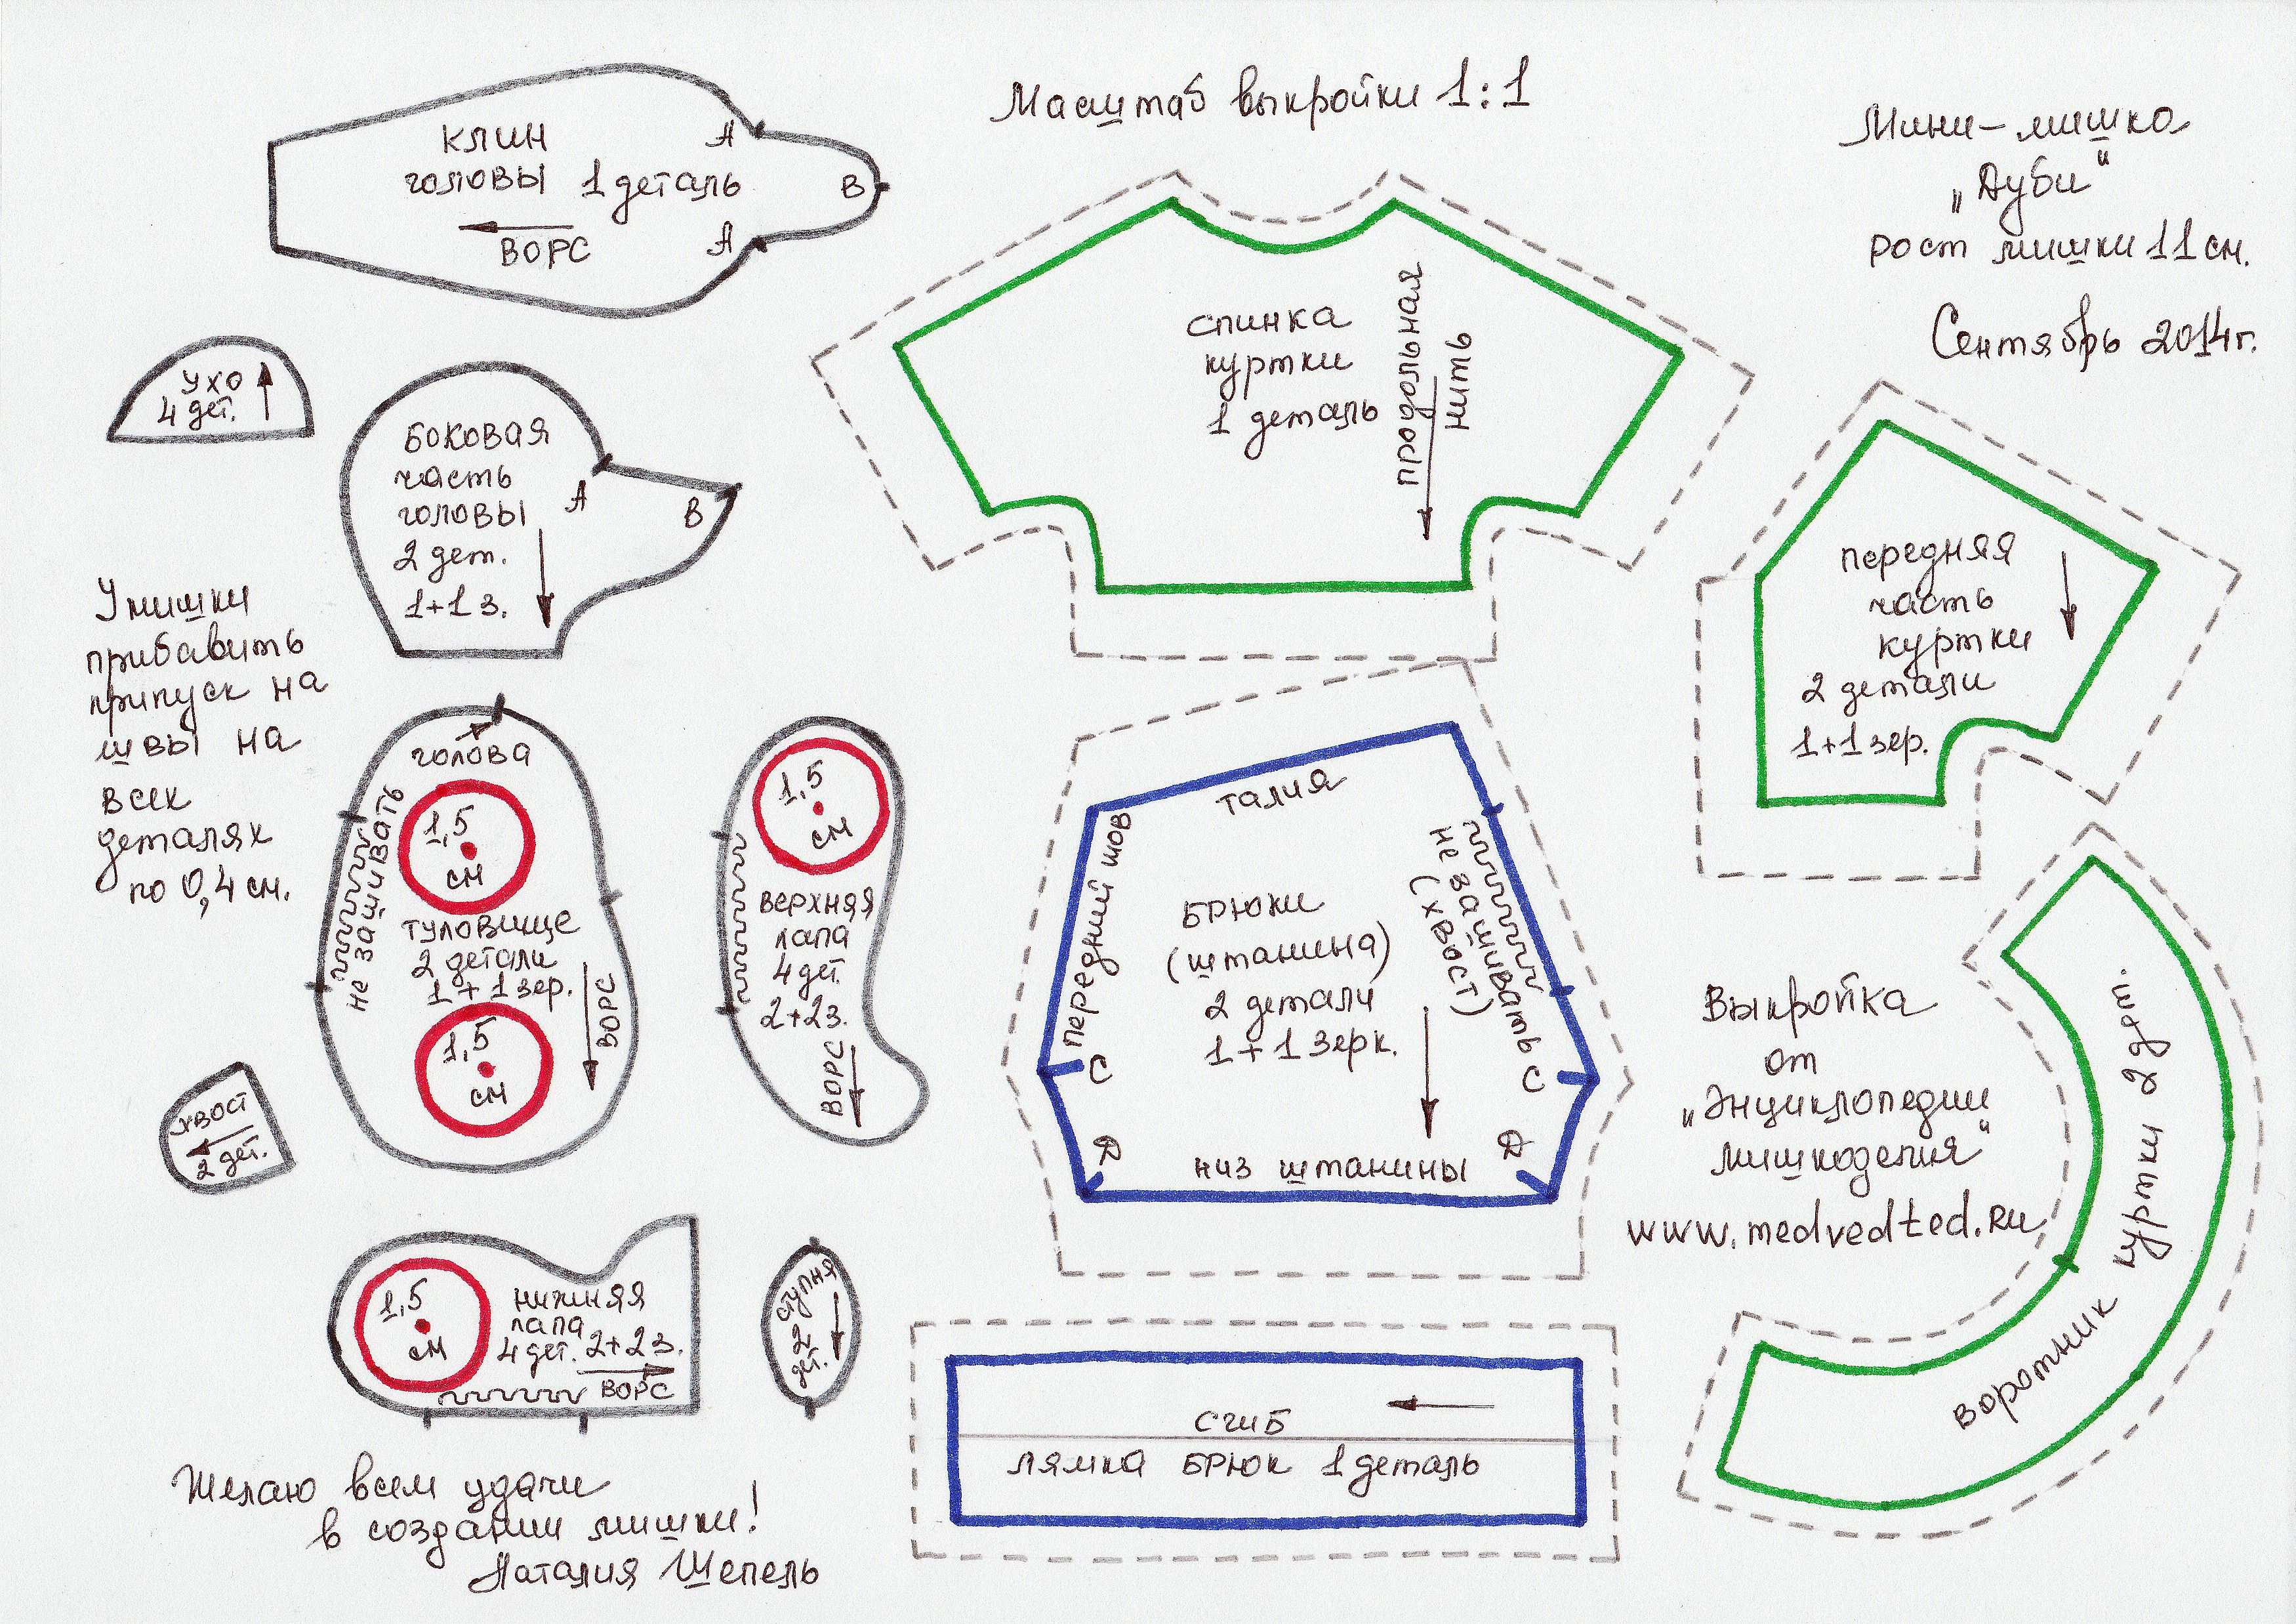 Масштаб выкройки 1:1
Мини-мишка
„Дуби"
рост мишки 11 см.
Сентябрь 2014г.
КЛИН
ГОЛОВЫ 1 деталь
ВОРС
А
А
В
УХО
4 дет.
БОКОВАЯ
часть
ГОЛОВЫ
2 дет.
1+1 з.
А
В
У мишки
прибавить
припуск на
швы на
всех
деталях
по 0,4 см.
ГОЛОВА
1,5
см
не зашивать
ТУЛОВИЩЕ
2 детали
1 + 1 зер.
ВОРС
1,5
см
1,5
см
ВЕРХНЯЯ
лапа
4 дет.
2+2з.
ВОРС
ХВОСТ
2 дет.
1,5
см
НИЖНЯЯ
лапа
4 дет. 2+2 з.
ВОРС
ступня
2
дет.
Желаю всем удачи
в создании мишки!
Наталия Шепель
СПИНКА
куртки
1 деталь
продольная
нить
передняя
часть
куртки
2 детали
1+1 зер.
ТАЛИЯ
передний шов
не зашивать
(хвост)
БРЮКИ
(штанина)
2 детали
1 + 1 зерк.
С
С
Д
Д
низ штанины
СГИБ
ЛЯМКА БРЮК 1 деталь
Выкройка
от
„Энциклопедии
мишкоделия"
www.medvedted.ru
воротник куртки 2 дет.